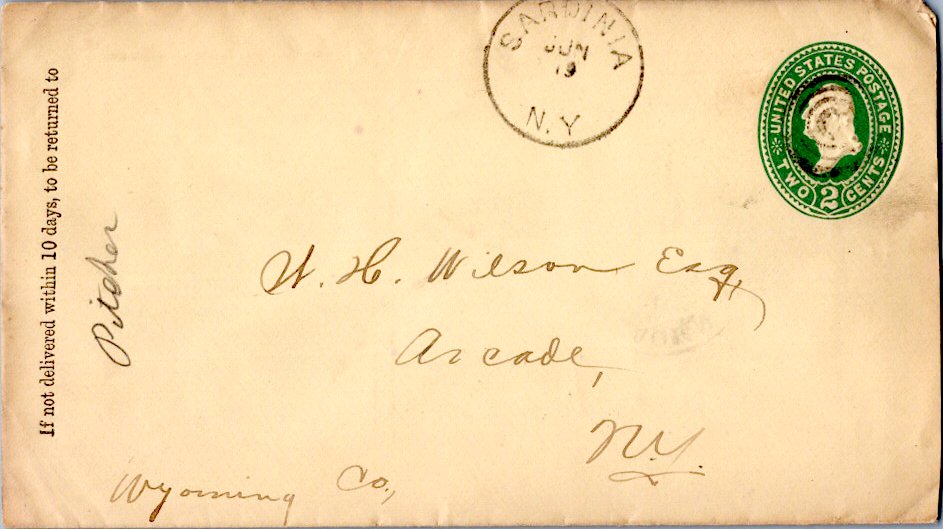 SARDINIA
JUN
19
N.Y
UNITED STATES POSTAGE
TWO 2 CENTS
If not delivered within 10 days, to be returned to
Pitcher
W. H. Wilson Esq,
Arcade,
N.Y.
Wyoming Co,